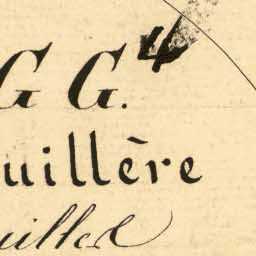 G G. 4
uillère
uilled